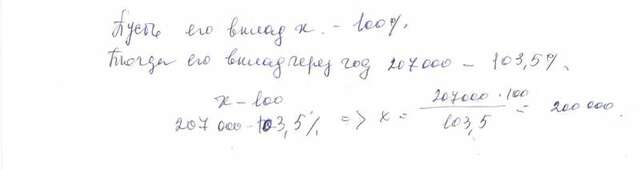 Пусть его вклад x. - 100%.
Тогда его вклад через год 207000 - 103,5%.
x - 100
207 000 - 103,5% => x = 207000 · 100 / 103,5 = 200 000.